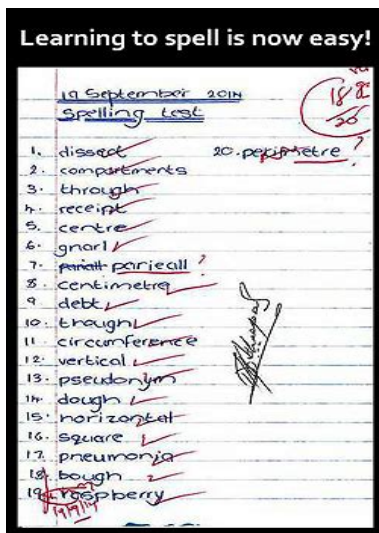 Learning to spell is now easy!
19 September 2014
Spelling test
18
20
1. dissect
2. compartments
3. through
4. receipt
5. centre
6. gnarl
7. pariall parieall ?
8. centimetre
9. debt
10. though
11. circumference
12. vertical
13. pseudonym
14. dough
15. horizontal
16. square
17. pneumonia
18. bough
19. raspberry
20. perifmetre ?
19/9/14